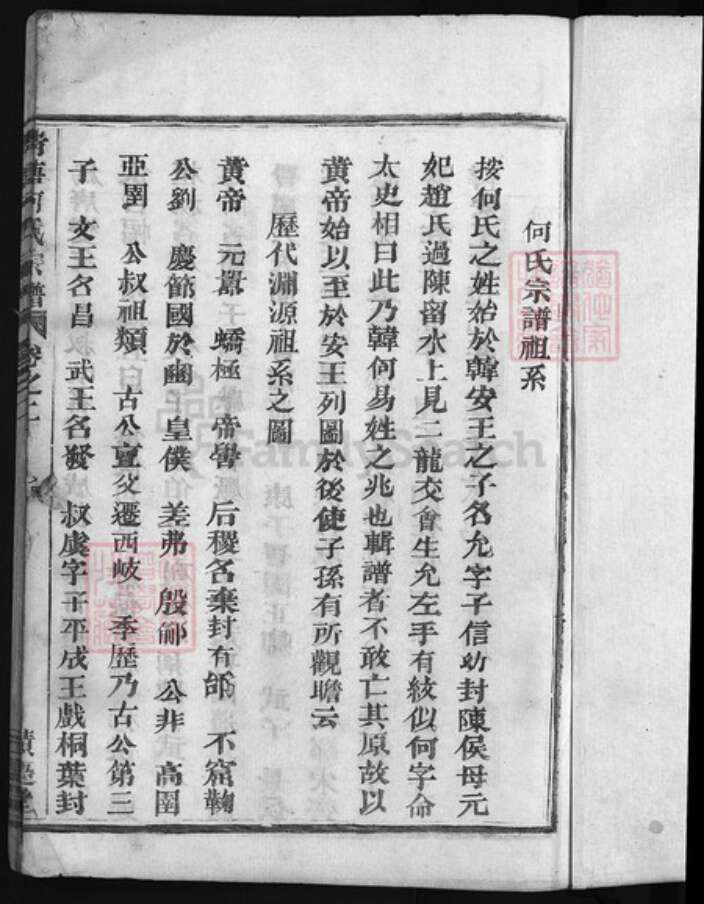 何氏宗譜祖系
按何氏之姓始於韓安王之子名允字子信幼封陳侯母元
妃趙氏過陳留水上見二龍交會生允左手有紋似何字命
太史相曰此乃韓何易姓之兆也輯譜者不敢亡其原故以
黄帝始以至於安王列圖於後使子孫有所觀瞻云
歷代淵源祖系之圖
黄帝 元囂 蟜極 帝嚳 后稷名棄封有邰 不窋鞠
公劉 慶節國於豳 皇僕 差弗 毀隃 公非 高圉
亞圉 公叔祖類 古公亶父遷西岐 季歷乃古公第三
子 文王名昌 武王名發 叔虞字子平成王戲桐葉封
何氏宗譜
FamilySearch